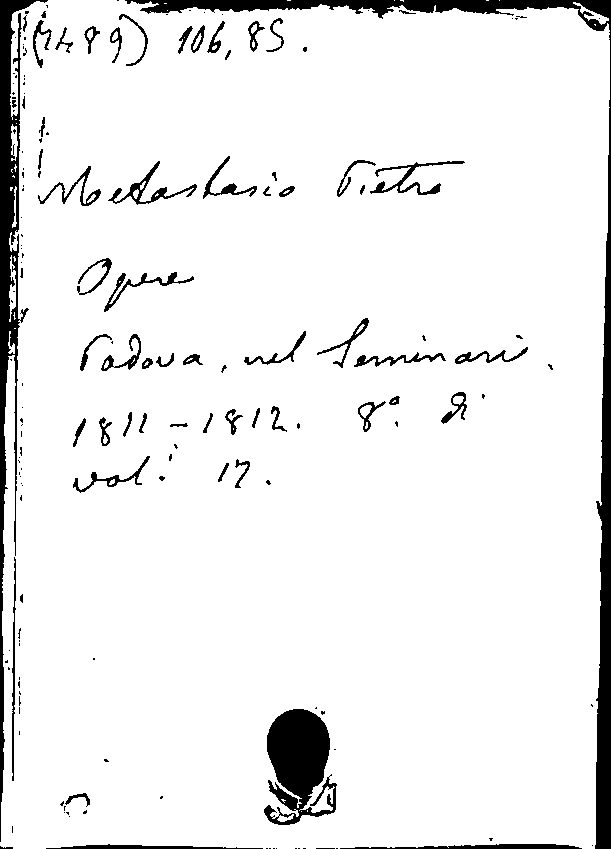 (7489) 106,85.
Metastasio Pietro
Opere
Padova, nel Seminari.
1811-1812. 8º. di
vol.i 17.